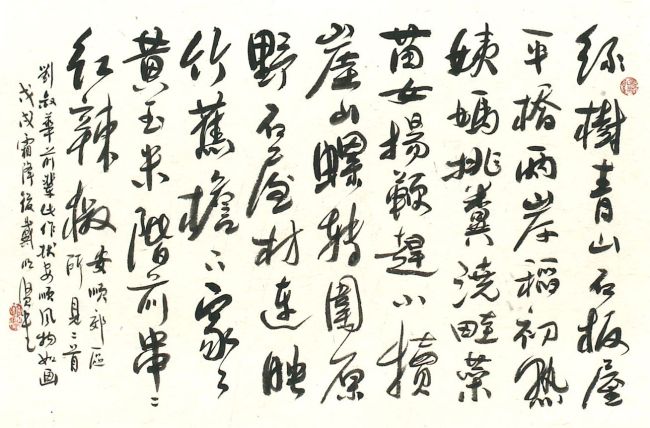 綠樹青山石板屋
平橋兩岸稻初熟
姨媽挑糞澆畦菜
苗女揚鞭趕小犢
崖山螺轉圍原
野石屋村連映
竹蕉檐下家〻
黄玉米階前串〻
红辣椒
安順郊區
所見二首
劉叔華前輩此作狀安順風物如画
戊戌霜降後戴明贤